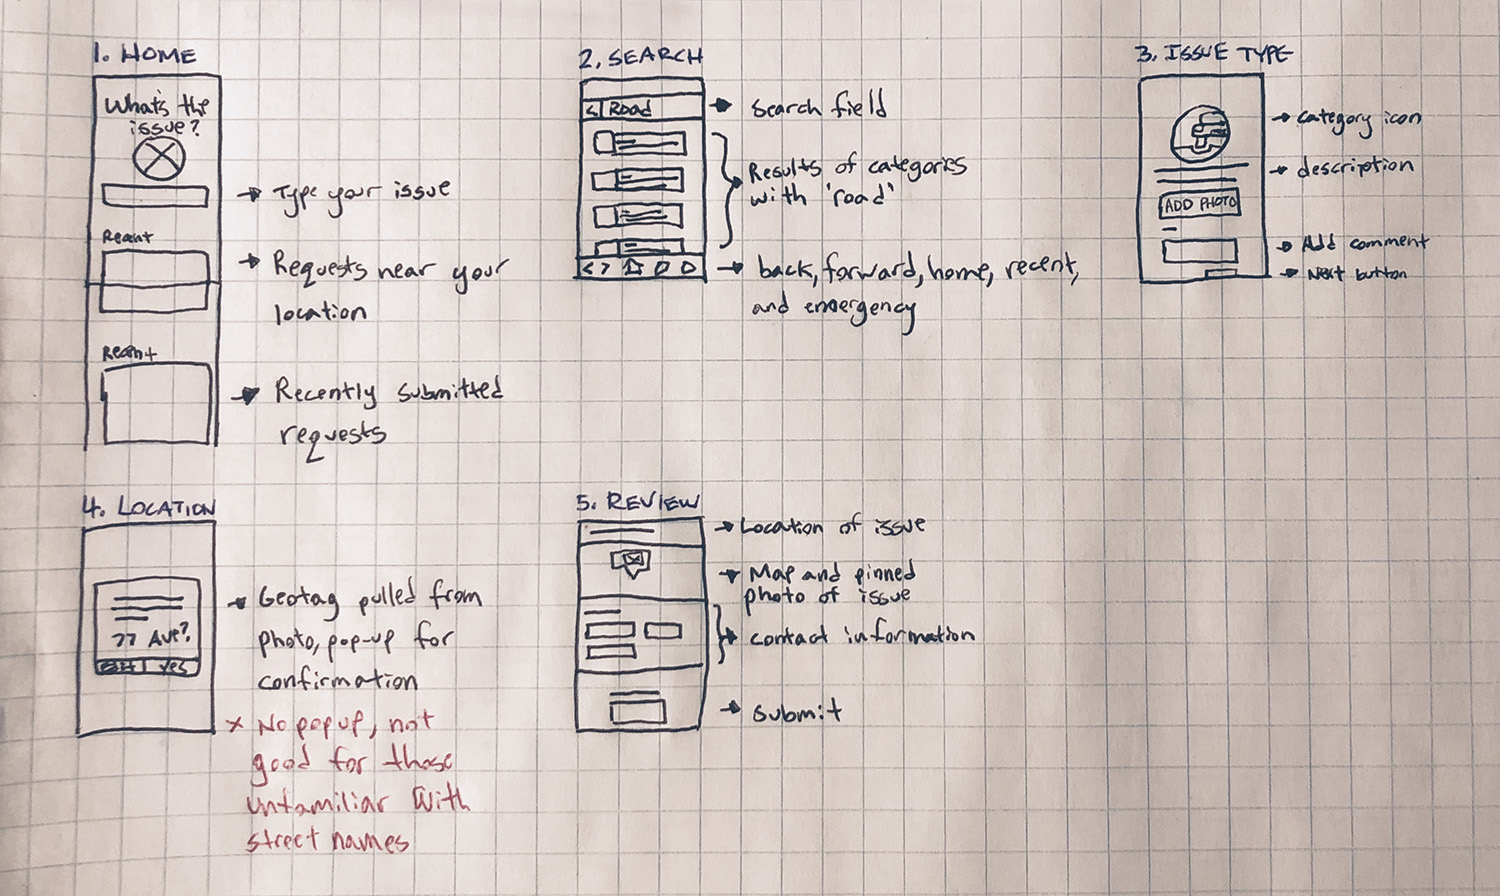 1. HOME
What's the
issue?
→ Type your issue
Recent
→ Requests near your
location
Recent
→ Recently submitted
requests
2. SEARCH
< Road
→ Search field
Results of categories
with 'road'
< >
→ back, forward, home, recent,
and emergency
3. ISSUE TYPE
→ category icon
→ description
ADD PHOTO
→ Add comment
→ Next button
4. LOCATION
77 Ave?
Edit yes
→ Geotag pulled from
photo, pop-up for
confirmation
x No popup, not
good for those
unfamiliar with
street names
5. REVIEW
→ Location of issue
→ Map and pinned
photo of issue
→ contact information
→ Submit